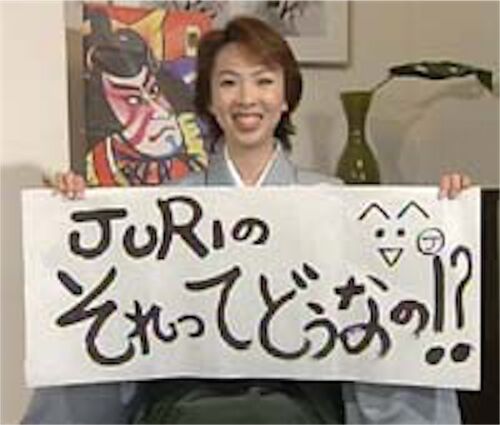 JURIの
それってどうなの!?